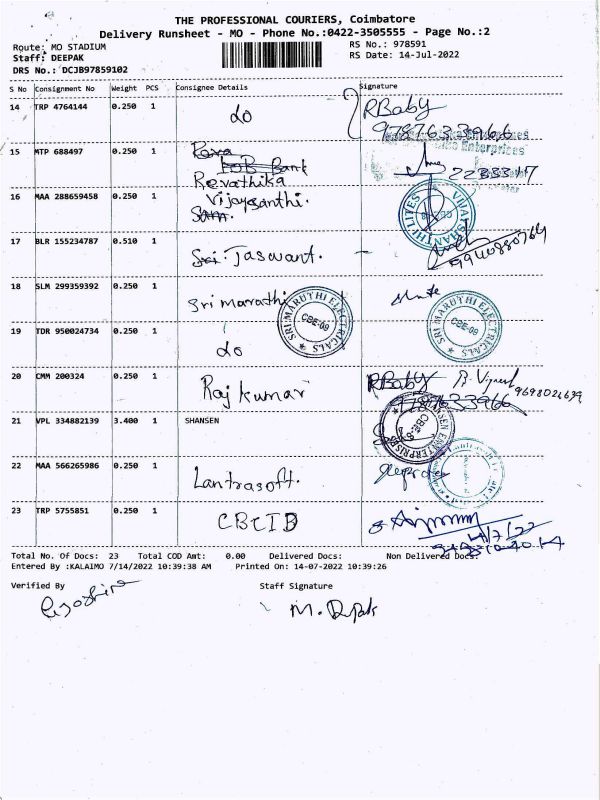 THE PROFESSIONAL COURIERS, Coimbatore
Delivery Runsheet - MO - Phone No.:0422-3505555 - Page No.:2
Route: MO STADIUM
Staff: DEEPAK
DRS No.: DCJB97859102
RS No.: 978591
RS Date: 14-Jul-2022
S No Consignment No Weight PCS Consignee Details Signature
14 TRP 4764144 0.250 1 do RBaby
9787633966
15 MTP 688497 0.250 1 Revathika
Enterprises
16 MAA 288659458 0.250 1 Vijayasanthi.
VIJAY SHANTHI LITES
17 BLR 155234787 0.510 1 Sri. Jaswant.
9940880769
18 SLM 299359392 0.250 1 Sri marathi
SRI MARUTHI ELECTRICALS CBE-09
SRI MARUTHI ELECTRICALS CBE-09
19 TDR 950024734 0.250 1 do
20 CMM 200324 0.250 1 Raj kumar RBaby
9787633966
21 VPL 334882139 3.400 1 SHANSEN
22 MAA 566265986 0.250 1 Lantrasoft.
23 TRP 5755851 0.250 1 CBCID
14/7/22
Total No. Of Docs: 23 Total COD Amt: 0.00 Delivered Docs: Non Delivered Docs:
Entered By :KALAIMO 7/14/2022 10:39:38 AM Printed On: 14-07-2022 10:39:26
Verified By Staff Signature
M. Dpak